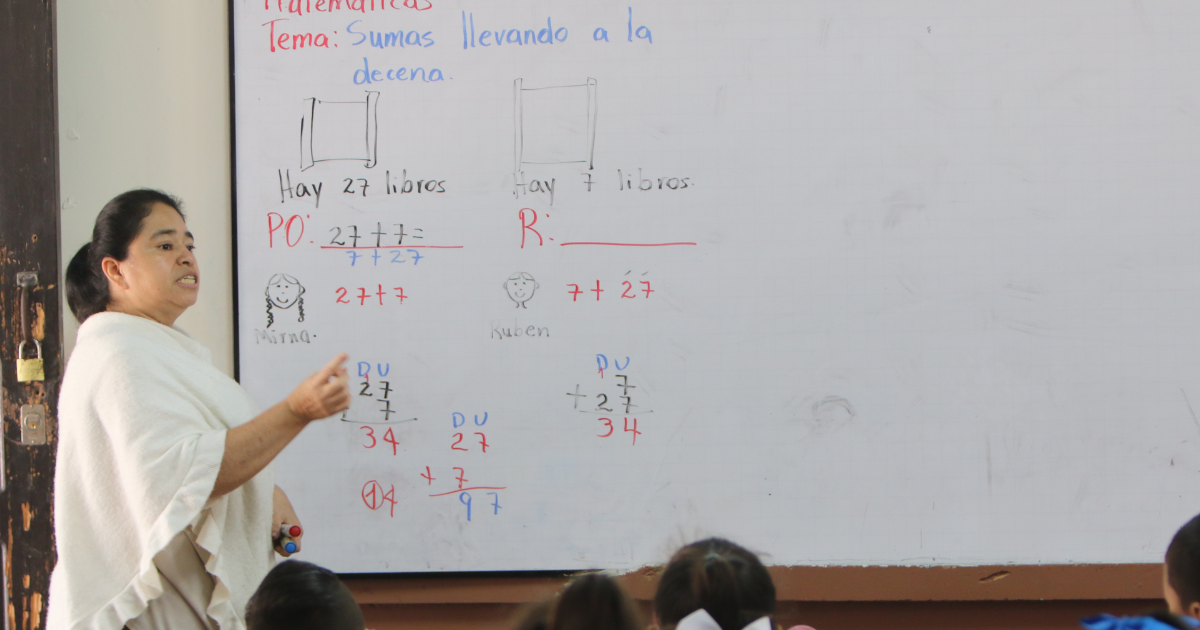 Matemáticas
Tema: Sumas llevando a la
decena.
Hay 27 libros
Hay 7 libros.
PO: 27+7=
7+27
R:
27+7
7+27
Mirna.
Ruben
D U
1
27
7
34
14
D U
27
+ 7
97
D U
1
7
+ 27
34